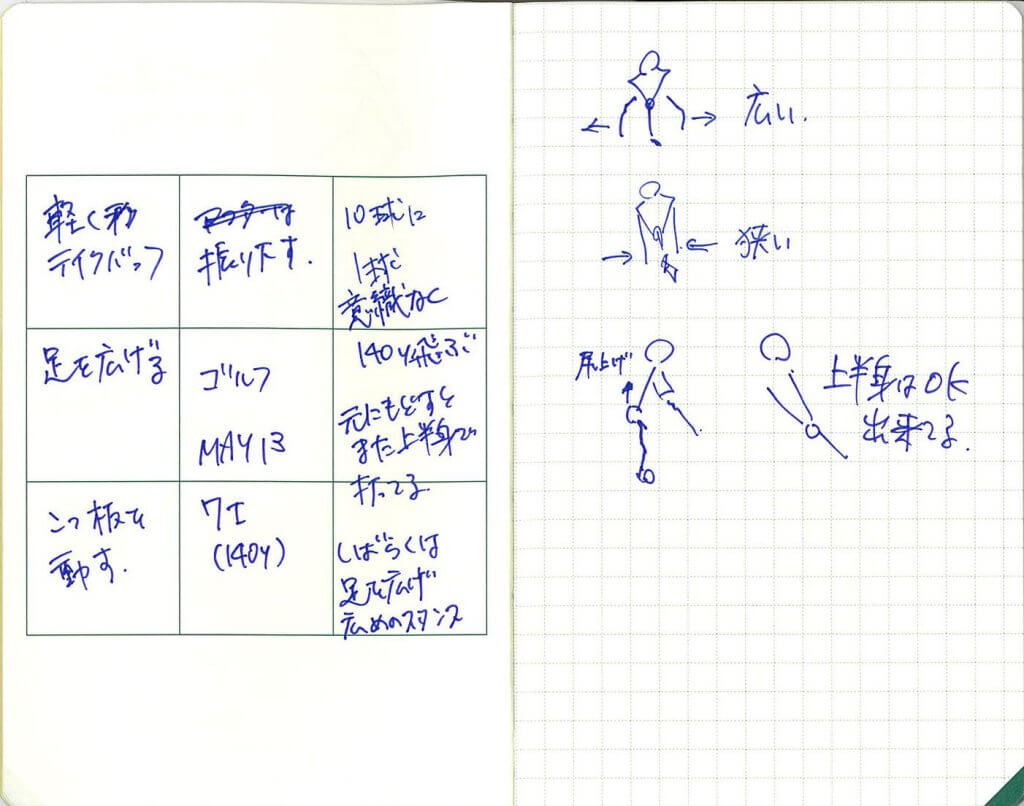 軽く
テイクバック
振り下す.
10球に
1球だ
意織なく
足を広げる
ゴルフ
MAY 13
140y飛ぶ
元にもどすと
また上半身で
打ってる
こつ板を
動す.
7I
(140y)
しばらくは
足を広げ
広めのスタンス
広い.
狭い
上げ
上半身はOK
出来てる.